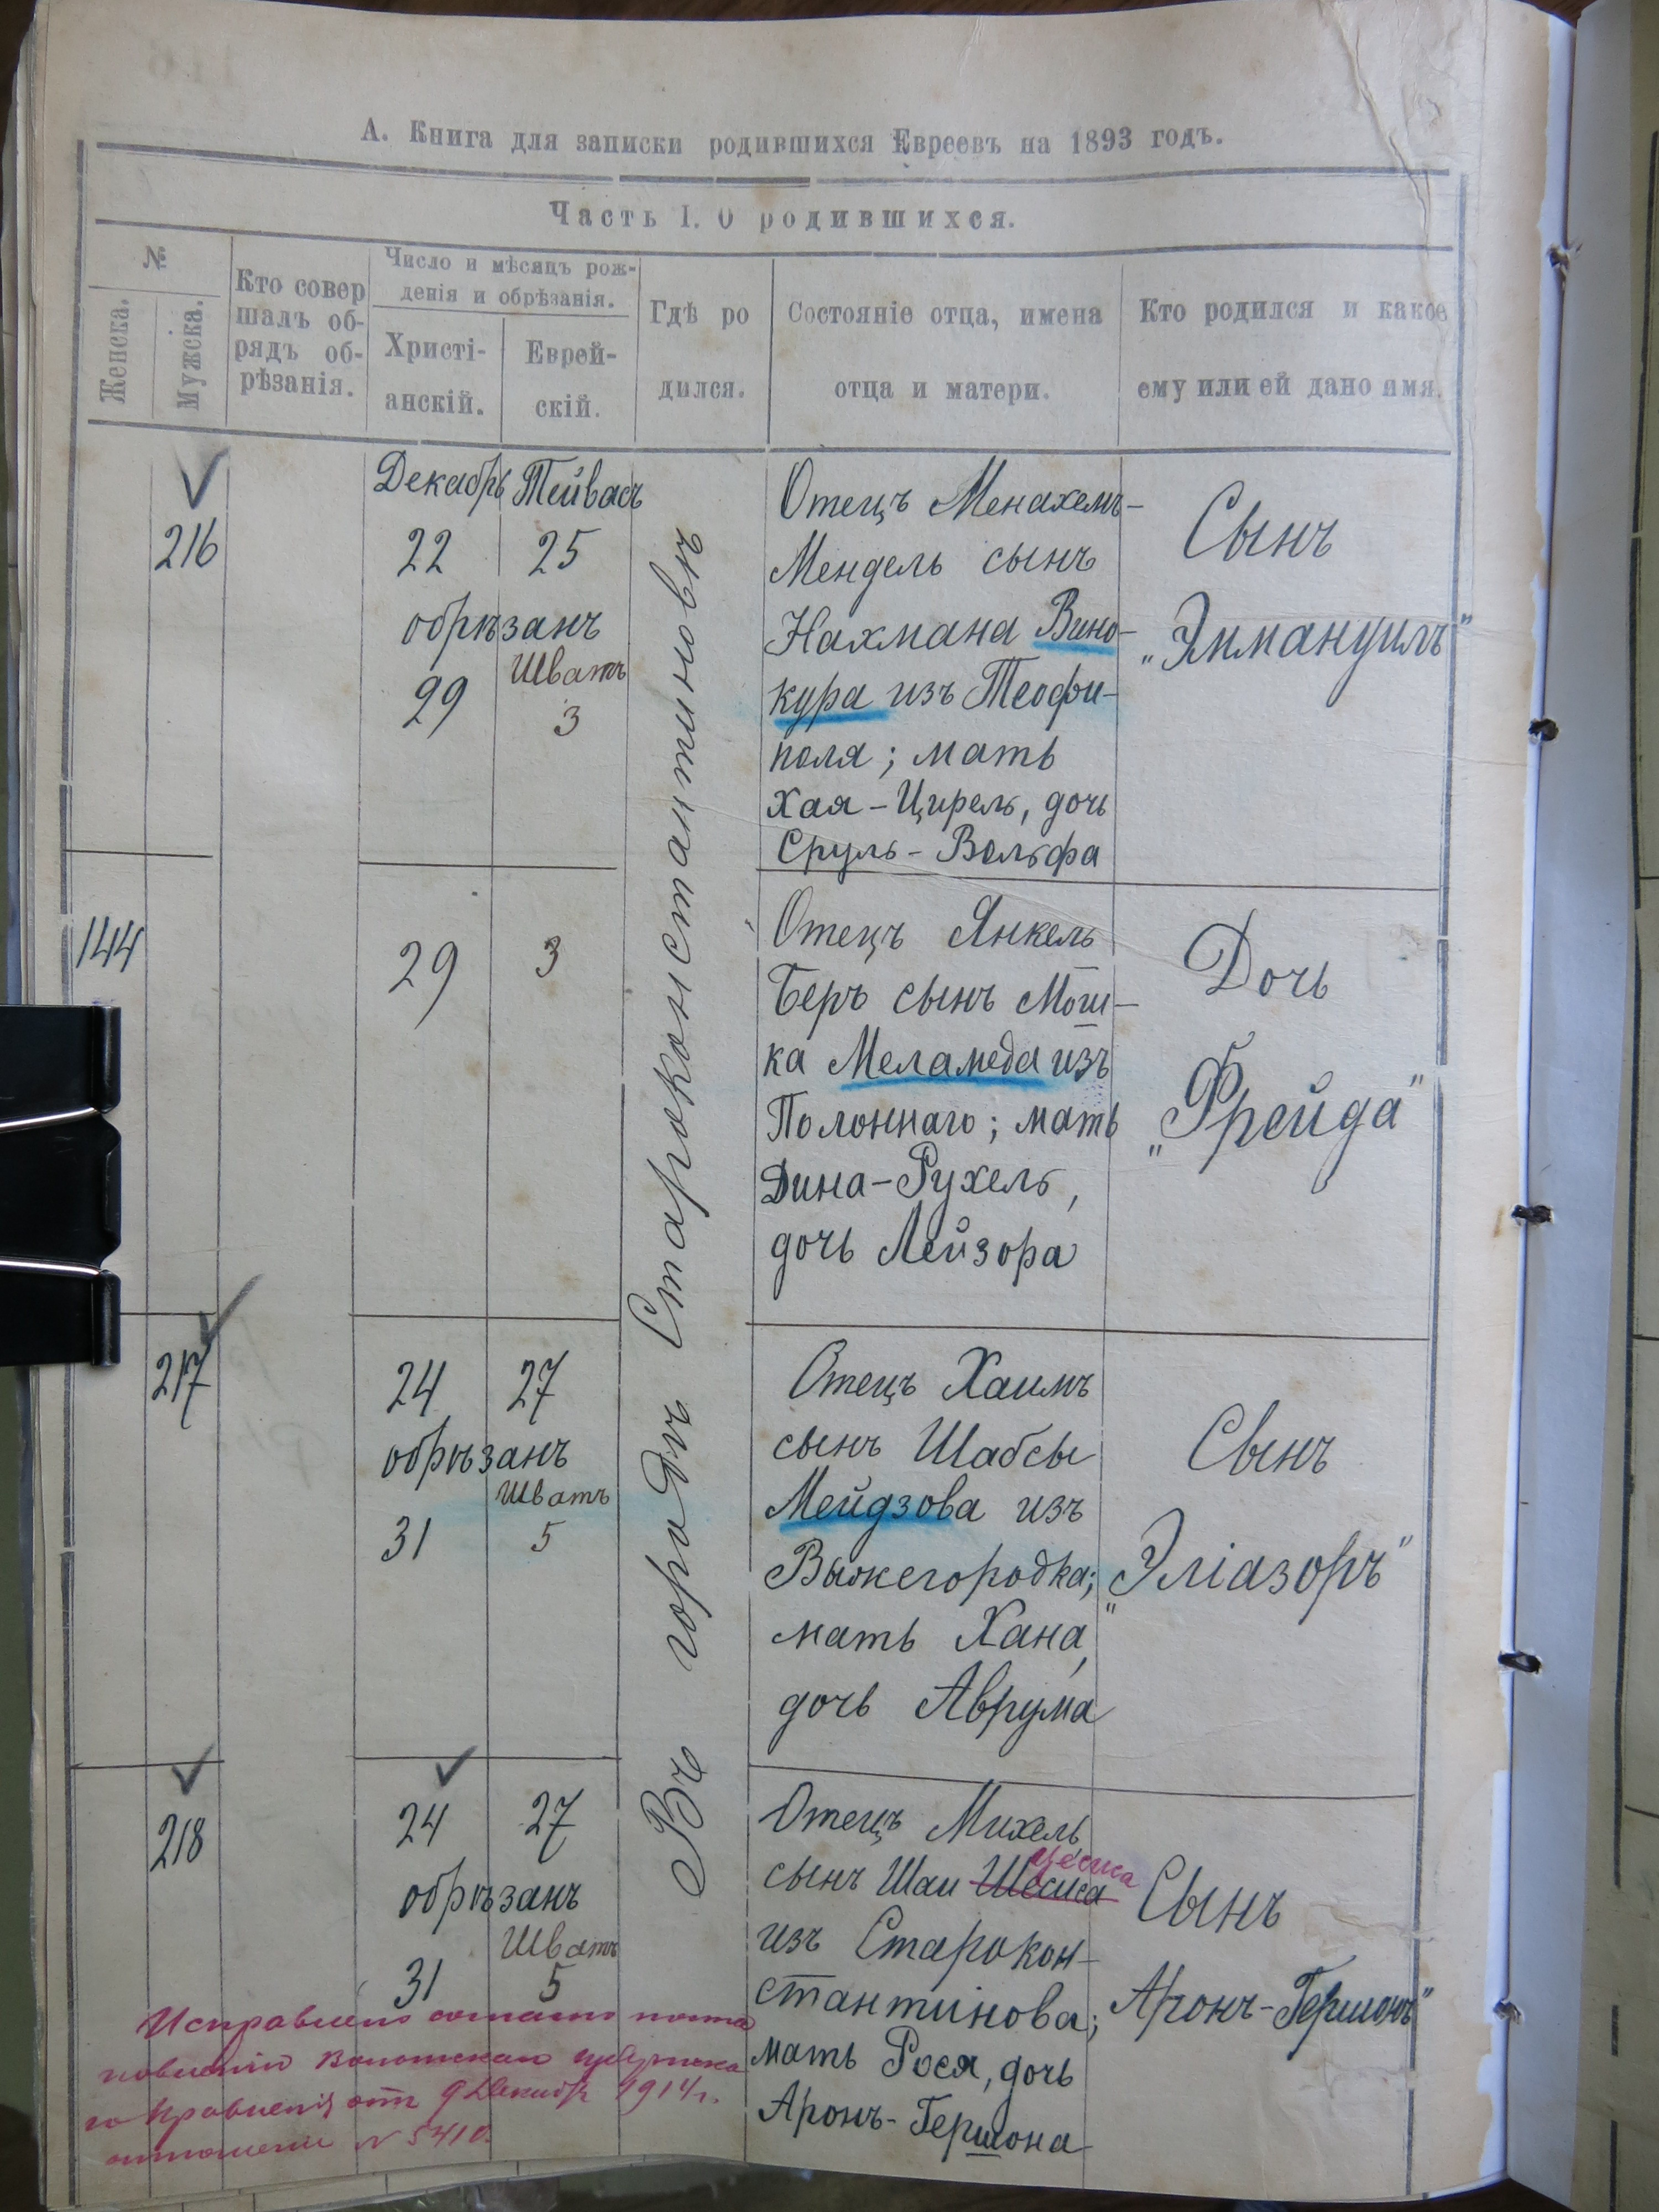 А. Книга для записки родившихся Евреевъ на 1893 годъ.
Часть I. О родившихся.
№
Женска.
Мужска.
Кто совер
шалъ об-
рядъ об-
рѣзанія.
Число и мѣсяцъ рож-
денія и обрѣзанія.
Христі-
анскій.
Еврей-
скій.
Гдѣ ро
дился.
Состояніе отца, имена
отца и матери.
Кто родился и какое
ему или ей дано имя.
216
Декабрь Тейвась
22 25
обрѣзанъ
Шватъ
29 3
Въ городѣ Старокомстантиновѣ
Отецъ Менахемъ-
Мендель сынъ
Нахмана Вино-
кура изъ Теофи-
поля; мать
Хая-Цирель, дочь
Сруль-Вольфа
Сынъ
„Эммануилъ"
144
29 3
Отецъ Янкель
Беръ сынъ Мош-
ка Меламеда изъ
Полоннаго; мать
Дина-Рухель,
дочь Лейзора
Дочь
„Фрейда"
217
24 27
обрѣзанъ
Шватъ
31 5
Отецъ Хаимъ
сынъ Шабсы
Мейдзова изъ
Выжегородка;
мать Хана,
дочь Аврума
Сынъ
„Эліазоръ"
218
24 27
обрѣзанъ
Шватъ
31 5
Отецъ Михель
сынъ Шаи
изъ Старокон-
стантинова;
мать Рося, дочь
Аронъ-Гершона
Сынъ
Аронъ-Гершонъ"
Исправлено согласно поста
новленію Волынскаго Губернска
го Правленія отъ 9 Декабр 1914 г.
отношеніе N 5410.